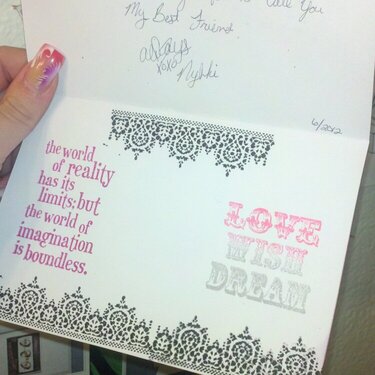 Call You
My Best Friend
always
xoxo
Nykki
6/2012
the world
of reality
has its
limits; but
the world of
imagination
is boundless.
LOVE
WISH
DREAM